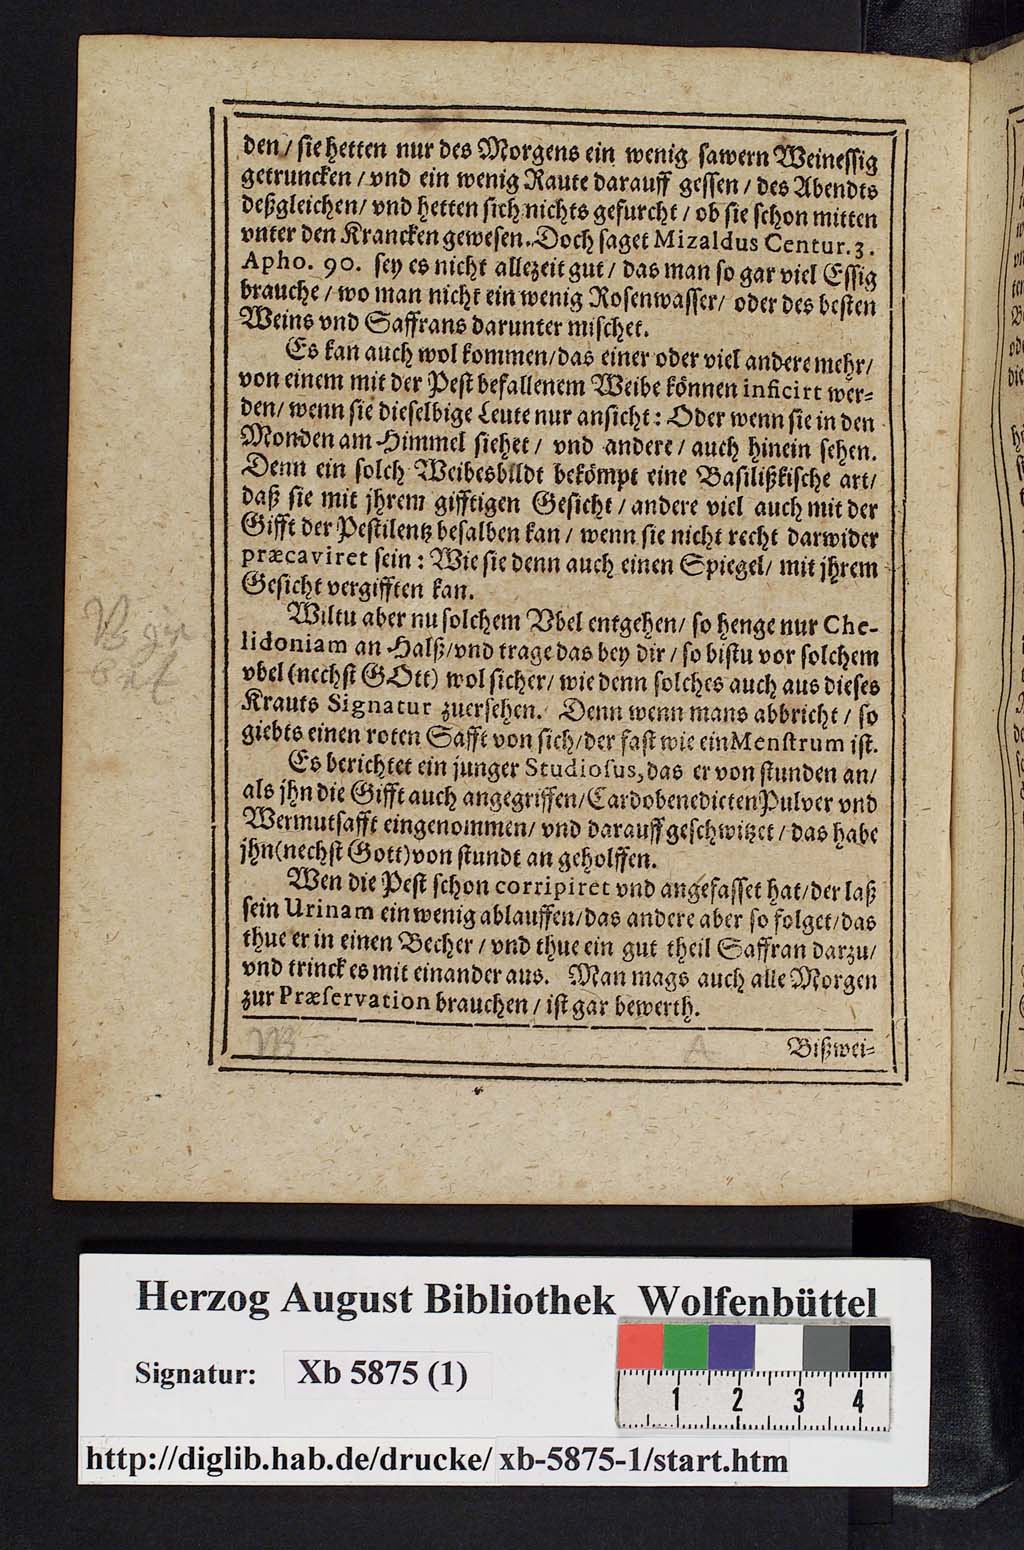 den / sie hetten nur des Morgens ein wenig sawern Weinessig
getruncken / vnd ein wenig Raute darauff gessen / des Abendts
deßgleichen / vnd hetten sich nichts gefurcht / ob sie schon mitten
vnter den Krancken gewesen. Doch saget Mizaldus Centur. 3.
Apho. 90. sey es nicht allezeit gut / das man so gar viel Essig
brauche / wo man nicht ein wenig Rosenwasser / oder des besten
Weins vnd Saffrans darunter mischet.
Es kan auch wol kommen / das einer oder viel andere mehr /
von einem mit der Pest befallenem Weibe können inficirt wer=
den / wenn sie dieselbige Leute nur ansicht : Oder wenn sie in den
Monden am Himmel siehet / vnd andere / auch hinein sehen.
Denn ein solch Weibesbildt bekömpt eine Basilißkische art /
daß sie mit jhrem gifftigen Gesicht / andere viel auch mit der
Gifft der Pestilentz besalben kan / wenn sie nicht recht darwider
præcaviret sein : Wie sie denn auch einen Spiegel / mit jhrem
Gesicht vergifften kan.
Wiltu aber nu solchem Vbel entgehen / so henge nur Che-
lidoniam an Halß / vnd trage das bey dir / so bistu vor solchem
vbel (nechst GOtt) wol sicher / wie denn solches auch aus dieses
Krauts Signatur zuersehen. Denn wenn mans abbricht / so
giebts einen roten Safft von sich / der fast wie ein Menstrum ist.
Es berichtet ein junger Studiosus, das er von stunden an /
als jhn die Gifft auch angegriffen / Cardobenedicten Pulver vnd
Wermutsafft eingenommen / vnd darauff geschwitzet / das habe
jhn (nechst Gott) von stundt an geholffen.
Wen die Pest schon corripiret vnd angefasset hat / der laß
sein Urinam ein wenig ablauffen / das andere aber so folget / das
thue er in einen Becher / vnd thue ein gut theil Saffran darzu /
vnd trinck es mit einander aus. Man mags auch alle Morgen
zur Præservation brauchen / ist gar bewerth.
Bißwei=
Herzog August Bibliothek Wolfenbüttel
Signatur: Xb 5875 (1)
1 2 3 4
http://diglib.hab.de/drucke/ xb-5875-1/start.htm